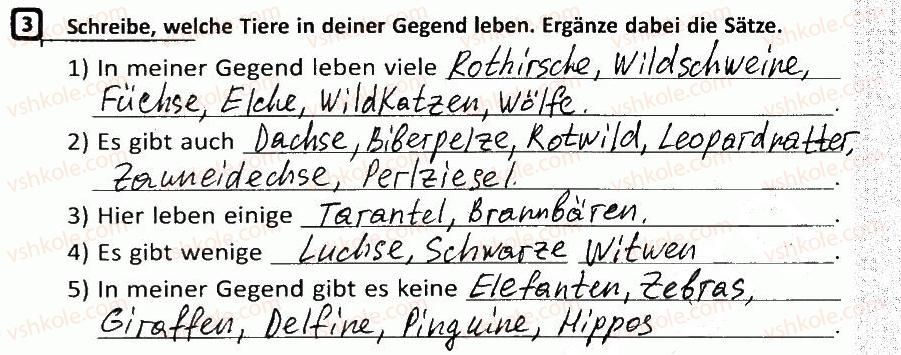 3 Schreibe, welche Tiere in deiner Gegend leben. Ergänze dabei die Sätze.
1) In meiner Gegend leben viele Rothirsche, Wildschweine,
Füchse, Elche, Wildkatzen, Wölfe.
2) Es gibt auch Dachse, Biberpelze, Rotwild, Leopardnatter,
Zauneidechse, Perlziesel.
3) Hier leben einige Tarantel, Brannbären.
4) Es gibt wenige Luchse, Schwarze Witwen.
5) In meiner Gegend gibt es keine Elefanten, Zebras,
Giraffen, Delfine, Pinguine, Hippos.